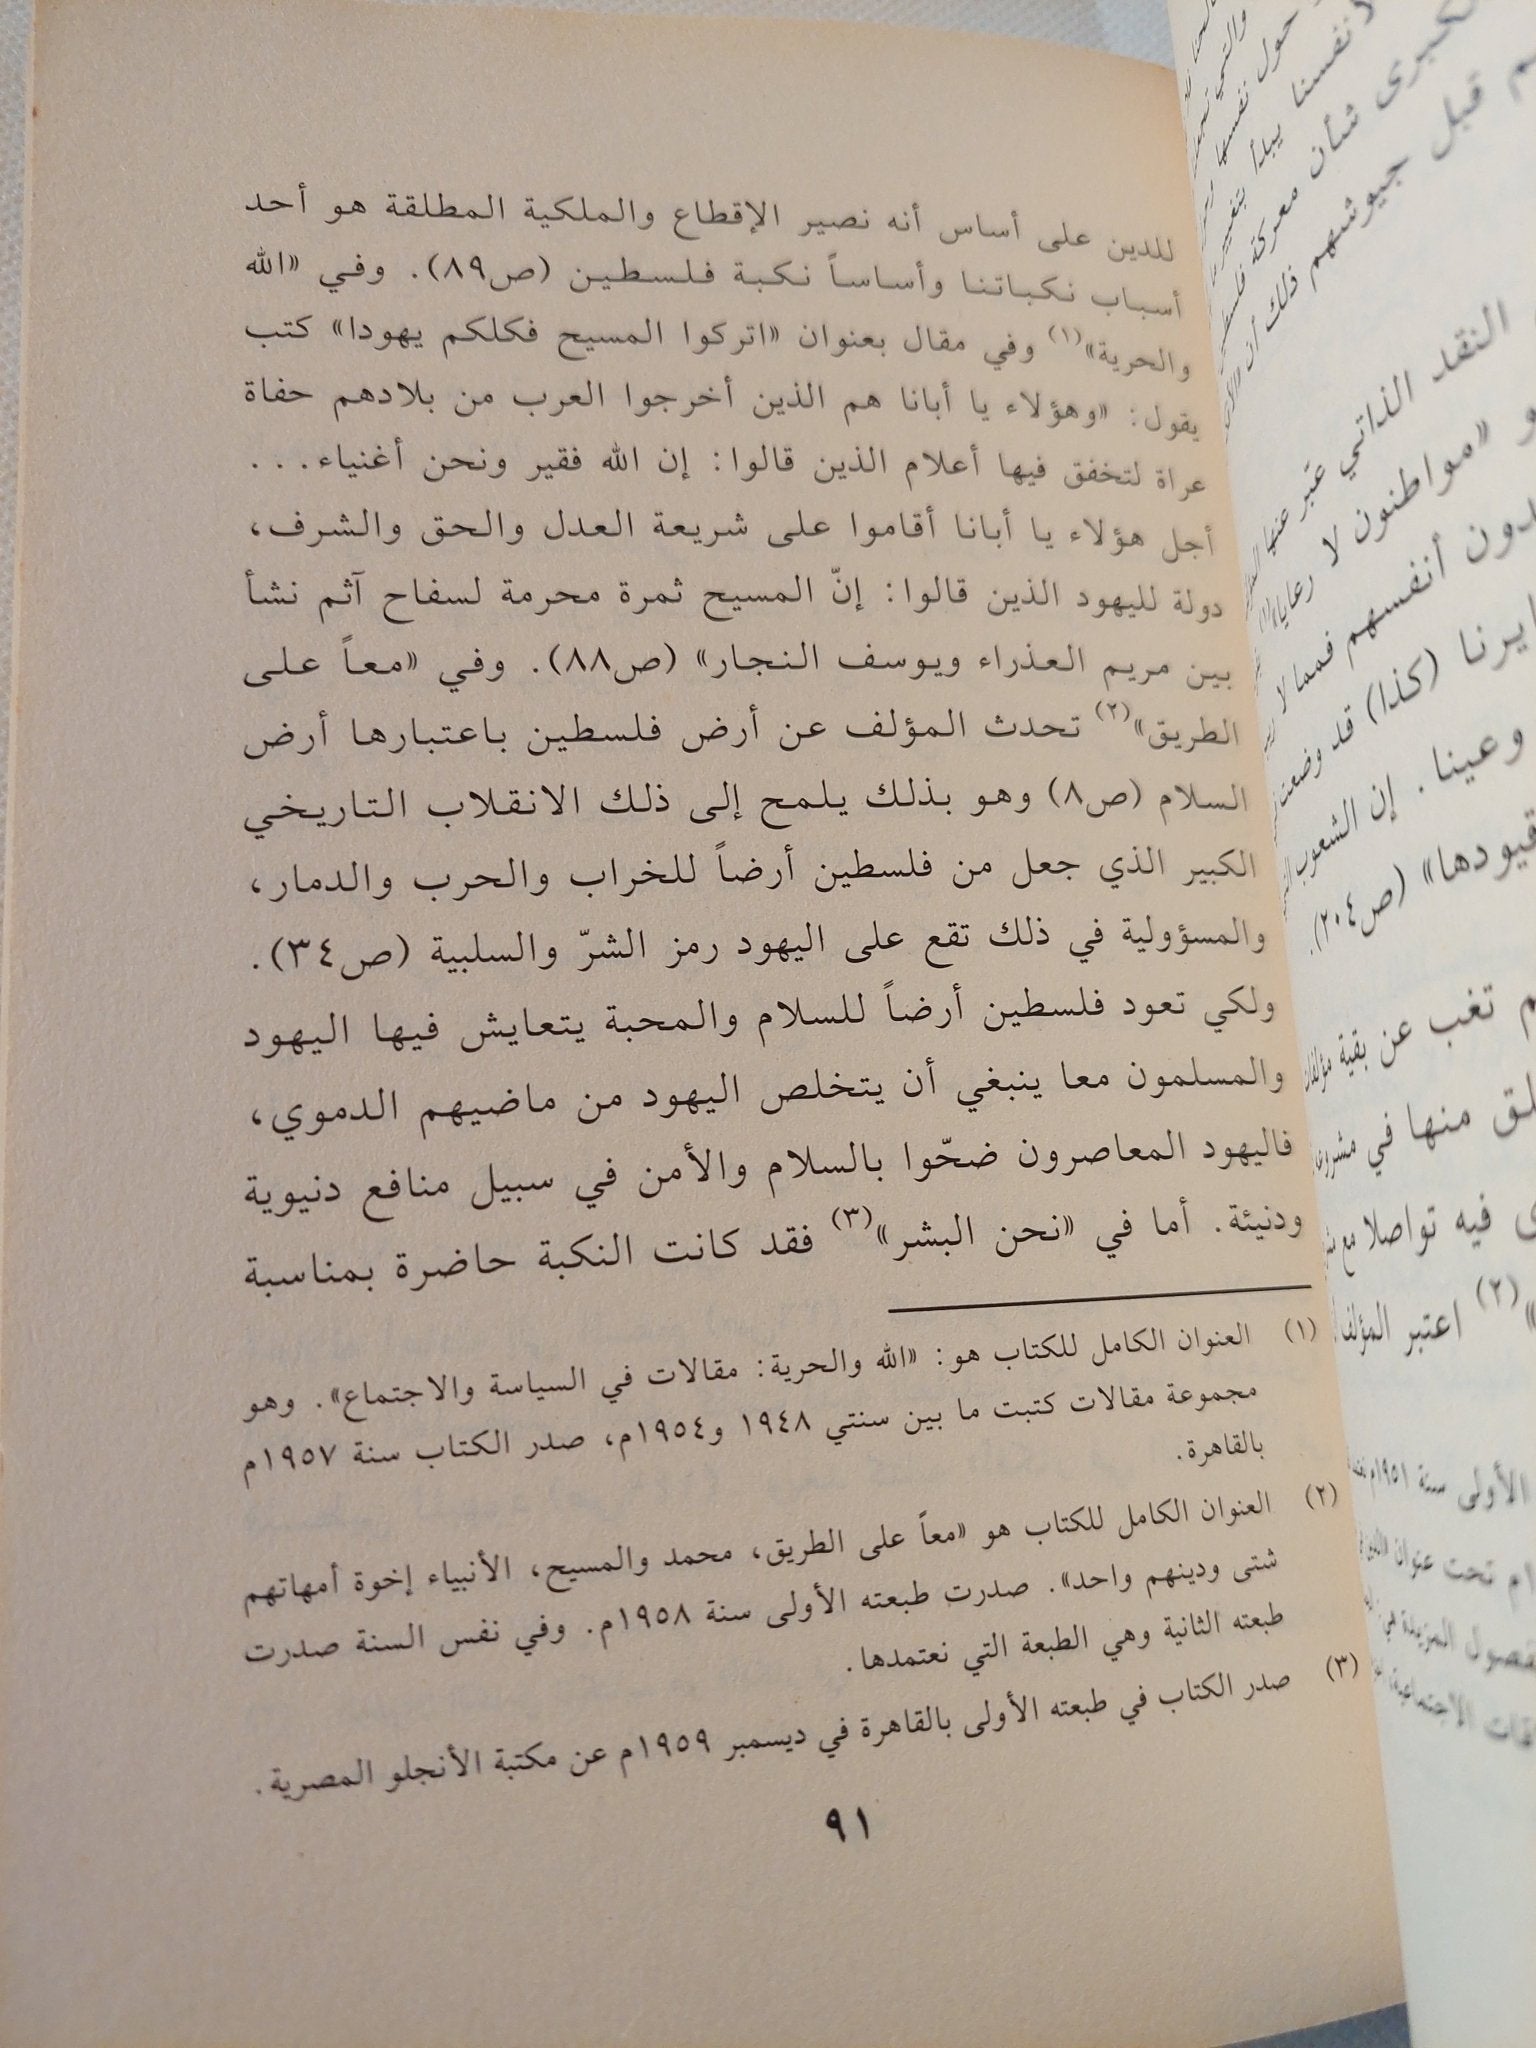 للدين على أساس أنه نصير الإقطاع والملكية المطلقة هو أحد
أسباب نكباتنا وأساساً نكبة فلسطين (ص٨٩). وفي «الله
والحرية»(١) وفي مقال بعنوان «اتركوا المسيح فكلكم يهودا» كتب
يقول: «وهؤلاء يا أبانا هم الذين أخرجوا العرب من بلادهم حفاة
عراة لتخفق فيها أعلام الذين قالوا: إن الله فقير ونحن أغنياء...
أجل هؤلاء يا أبانا أقاموا على شريعة العدل والحق والشرف،
دولة لليهود الذين قالوا: إنّ المسيح ثمرة محرمة لسفاح آثم نشأ
بين مريم العذراء ويوسف النجار» (ص٨٨). وفي «معاً على
الطريق»(٢) تحدث المؤلف عن أرض فلسطين باعتبارها أرض
السلام (ص٨) وهو بذلك يلمح إلى ذلك الانقلاب التاريخي
الكبير الذي جعل من فلسطين أرضاً للخراب والحرب والدمار،
والمسؤولية في ذلك تقع على اليهود رمز الشرّ والسلبية (ص٣٤).
ولكي تعود فلسطين أرضاً للسلام والمحبة يتعايش فيها اليهود
والمسلمون معا ينبغي أن يتخلص اليهود من ماضيهم الدموي،
فاليهود المعاصرون ضحّوا بالسلام والأمن في سبيل منافع دنيوية
ودنيئة. أما في «نحن البشر»(٣) فقد كانت النكبة حاضرة بمناسبة
(١) العنوان الكامل للكتاب هو: «الله والحرية: مقالات في السياسة والاجتماع». وهو
مجموعة مقالات كتبت ما بين سنتي ١٩٤٨ و١٩٥٤م، صدر الكتاب سنة ١٩٥٧م
بالقاهرة.
(٢) العنوان الكامل للكتاب هو «معاً على الطريق، محمد والمسيح، الأنبياء إخوة أمهاتهم
شتى ودينهم واحد». صدرت طبعته الأولى سنة ١٩٥٨م. وفي نفس السنة صدرت
طبعته الثانية وهي الطبعة التي نعتمدها.
(٣) صدر الكتاب في طبعته الأولى بالقاهرة في ديسمبر ١٩٥٩م عن مكتبة الأنجلو المصرية.
٩١
حول نفسها
لأنفسنا يبدأ
لكبرى شأن معركة
م قبل جيوشهم ذلك أن
النقد الذاتي عبّر عنها
و «مواطنون لا رعايا»(١)
دون أنفسهم فمما لا
ايرنا (كذا) قد وضعت
وعينا. إن الشعوب
قيودها» (ص٢٠٤).
م تغب عن بقية
لق منها في
ى فيه تواصلا مع
»(٢) اعتبر المؤلف
الأولى سنة ١٩٥١م
ام تحت عنوان